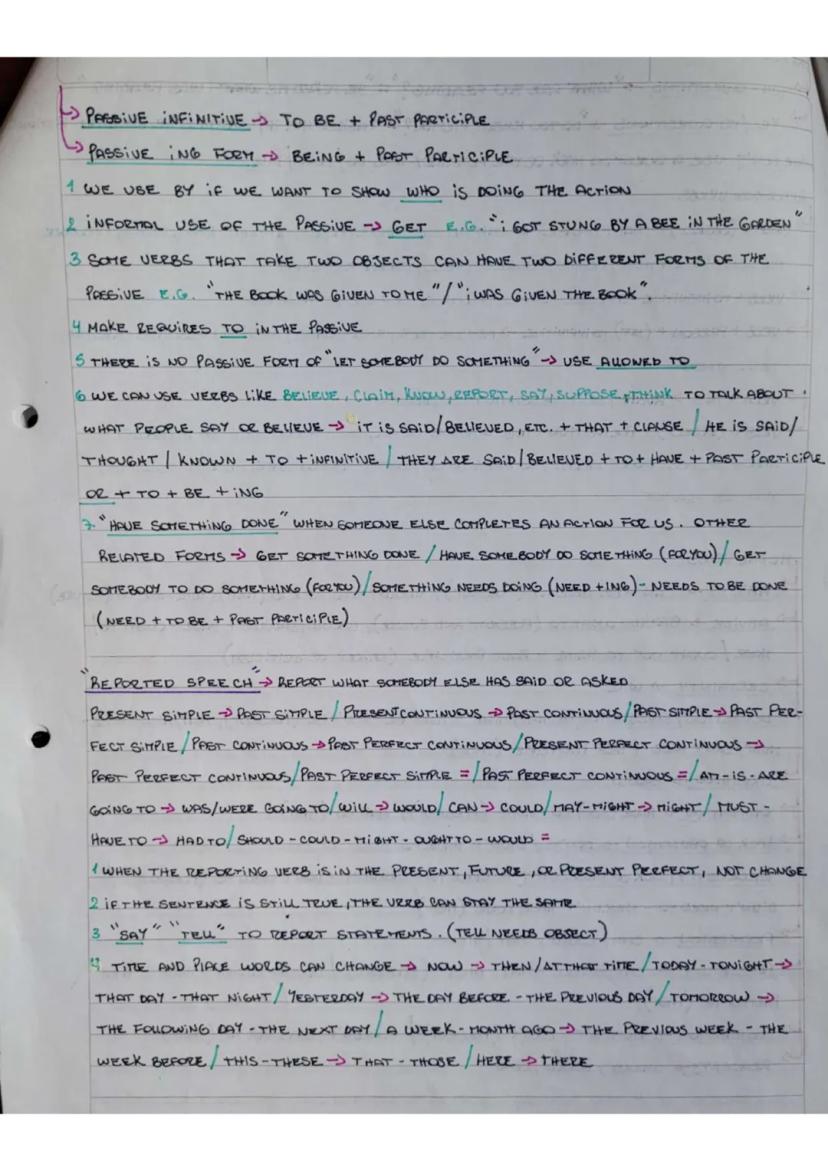 ↳ PASSIVE INFINITIVE → TO BE + PAST PARTICIPLE
↳ PASSIVE ING FORM → BEING + PAST PARTICIPLE
1 WE USE BY IF WE WANT TO SHOW WHO IS DOING THE ACTION
2 INFORMAL USE OF THE PASSIVE → GET E.G. "I GOT STUNG BY A BEE IN THE GARDEN"
3 SOME VERBS THAT TAKE TWO OBJECTS CAN HAVE TWO DIFFERENT FORMS OF THE
PASSIVE E.G. "THE BOOK WAS GIVEN TO ME"/"I WAS GIVEN THE BOOK".
4 MAKE REQUIRES TO IN THE PASSIVE
5 THERE IS NO PASSIVE FORM OF "LET SOMEBODY DO SOMETHING" → USE ALLOWED TO
6 WE CAN USE VERBS LIKE BELIEVE, CLAIM, KNOW, REPORT, SAY, SUPPOSE, THINK TO TALK ABOUT
WHAT PEOPLE SAY OR BELIEVE → IT IS SAID/BELIEVED, ETC. + THAT + CLAUSE / HE IS SAID/
THOUGHT / KNOWN + TO + INFINITIVE / THEY ARE SAID/BELIEVED + TO + HAVE + PAST PARTICIPLE
OR + TO + BE + ING
7 "HAVE SOMETHING DONE" WHEN SOMEONE ELSE COMPLETES AN ACTION FOR US. OTHER
RELATED FORMS → GET SOMETHING DONE / HAVE SOMEBODY DO SOMETHING (FOR YOU) / GET
SOMEBODY TO DO SOMETHING (FOR YOU) / SOMETHING NEEDS DOING (NEED + ING) - NEEDS TO BE DONE
(NEED + TO BE + PAST PARTICIPLE)
"REPORTED SPEECH" → REPORT WHAT SOMEBODY ELSE HAS SAID OR ASKED
PRESENT SIMPLE → PAST SIMPLE / PRESENT CONTINUOUS → PAST CONTINUOUS / PAST SIMPLE → PAST PER-
FECT SIMPLE / PAST CONTINUOUS → PAST PERFECT CONTINUOUS / PRESENT PERFECT CONTINUOUS →
PAST PERFECT CONTINUOUS / PAST PERFECT SIMPLE = / PAST PERFECT CONTINUOUS = / AM-IS-ARE
GOING TO → WAS/WERE GOING TO / WILL → WOULD / CAN → COULD / MAY-MIGHT → MIGHT / MUST -
HAVE TO → HAD TO / SHOULD - COULD - MIGHT - OUGHT TO - WOULD =
1 WHEN THE REPORTING VERB IS IN THE PRESENT, FUTURE, OR PRESENT PERFECT, NOT CHANGE
2 IF THE SENTENCE IS STILL TRUE, THE VERB CAN STAY THE SAME
3 "SAY" "TELL" TO REPORT STATEMENTS. (TELL NEEDS OBJECT)
4 TIME AND PLACE WORDS CAN CHANGE → NOW → THEN / AT THAT TIME / TODAY - TONIGHT →
THAT DAY - THAT NIGHT / YESTERDAY → THE DAY BEFORE - THE PREVIOUS DAY / TOMORROW →
THE FOLLOWING DAY - THE NEXT DAY / A WEEK - MONTH AGO → THE PREVIOUS WEEK - THE
WEEK BEFORE / THIS - THESE → THAT - THOSE / HERE → THERE